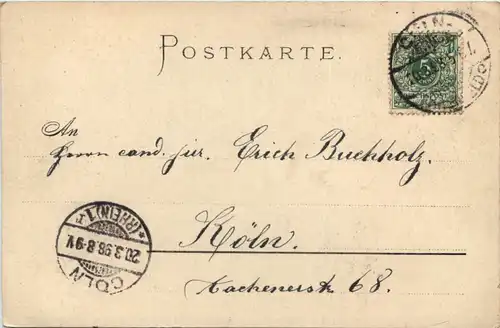 POSTKARTE.
An
Herrn cand. jur. Erich Buchholz.
Köln.
Aachenerstr. 68.
CÖLN
*(RHEIN) 1
20.3.98.8-9V.
CÖLN